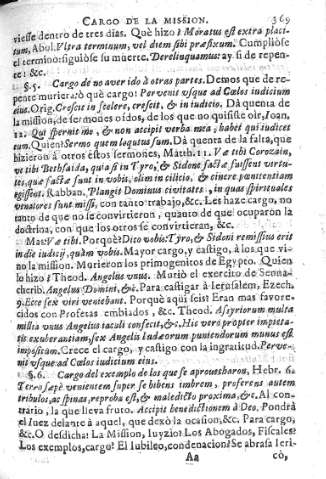 CARGO DE LA MISSION. 369
viesse dentro de tres dias. Què hizo? Moratus est extra placi-
tum, Abul. Vltra terminum, vel diem sibi præfixum. Cumpliòse
el termino: siguiòse su muerte. Derelinquamus: ay. si de repen-
te: &c.
§. 5. Cargo de no aver ido à otras partes. Demos que de re-
pente muriera: ò què cargo! Pervenit vsque ad Cœlos iudicium
eius. Orig. Crescit in scelere, crescit, & in iudicio. Dà quenta de
la mission, de sermones oidos, de los que no quisiste oir, Ioan.
12. Qui spernit me, & non accipit verba mea, habet qui iudicet
eum. Quien? Sermo quem loquutus sum. Dà quenta de la falta, que
hizieron à otros estos sermones, Matth. 11. Væ tibi Corozain,
væ tibi Bethsaida, quia si in Tyro, & Sidone factæ fuissent virtu-
tes, quæ factæ sunt in vobis, olim in cilicio, & cinere pœnitentiam
egissent. Rabban. Plangit Dominus civitates, in quas spirituales
venatores sunt missi, con tanto trabajo, &c. Les haze cargo, no
tanto de que no se convirtieron, quanto de que ocuparon la
doctrina, con que los otros se convirtieran, &c.
Mas: Væ tibi. Porquè? Dico vobis: Tyro, & Sidoni remissius erit
in die iudicij, quàm vobis. Mayor cargo, y castigo, à los que vi-
no la mission. Murieron los primogenitos de Egypto. Quien
lo hizo? Theod. Angelus vnus. Muriò el exercito de Senna-
cherib. Angelus Domini, &c. Para castigar à Ierusalem, Ezech.
9. Ecce sex viri veniebant. Porquè aqui seis? Eran mas favore-
cidos con Profetas embiados, &c. Theod. Assyriorum multa
millia vnus Angelus iaculi confecit, &c. His verò propter impieta-
tis exuberantiam, sex Angelis Iudæorum puniendorum munus est
impositum. Crece el cargo, y castigo con la ingratitud. Perve-
nit vsque ad Cœlos iudicium eius.
§. 6. Cargo del exemplo de los que se aprovecharon, Hebr. 6.
Terra sæpè venientem super se bibens imbrem, proferens autem
tribulos, ac spinas, reproba est, & maledicto proxima, &c. Al con-
trario, la que lleva fruto. Accipit benedictionem à Deo. Pondrà
el Iuez delante à aquel, que dexò la ocasion, &c. Para cargo,
&c. O desdicha! La Mission, Iuyzio! Los Abogados, Fiscales!
Los exemplos, cargo! El Iubileo, condenacion! Se abrasa Ieri-
Aa cò,